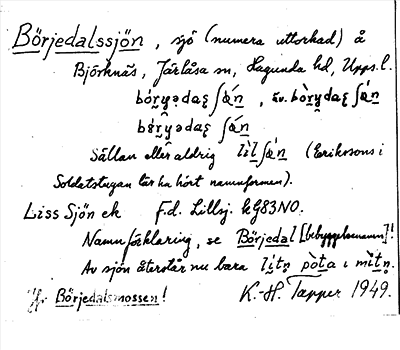 Börjedalssjön, sjö (numera uttorkad) å
Björknäs, Järlåsa sn, Hagunda hd, Upps. l.
bó̀ry̯ədaʂ ʃǿn, äv. bò̀rydaʂ ʃǿn
bǿ̀ry̯ədaʂ ʃǿn
Sällan eller aldrig lìlʃøn (Erikssons i
Soldatstugan lär ha hört namnformen).
Liss Sjön ek F.d. Lillsj. kG83NO.
Namnförklaring, se Börjedal [bebyggelsenamn]!
Av sjön återstår nu bara lìtn̥ pò̀ta i mìtn̥.
Jfr Börjedalsmossen! K.-H. Tapper 1949.